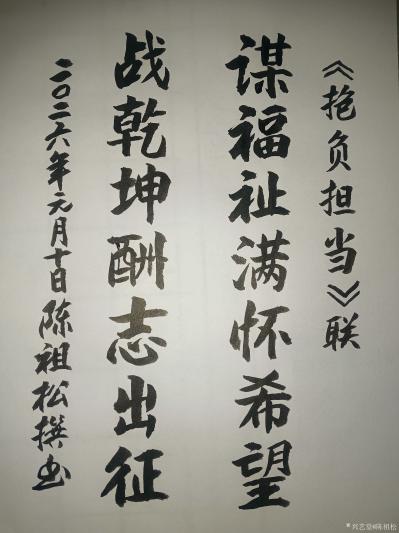 《抱负担当》联
谋福祉满怀希望
战乾坤酬志出征
二〇二六年元月十日陈祖松撰书
兴艺堂@陈祖松